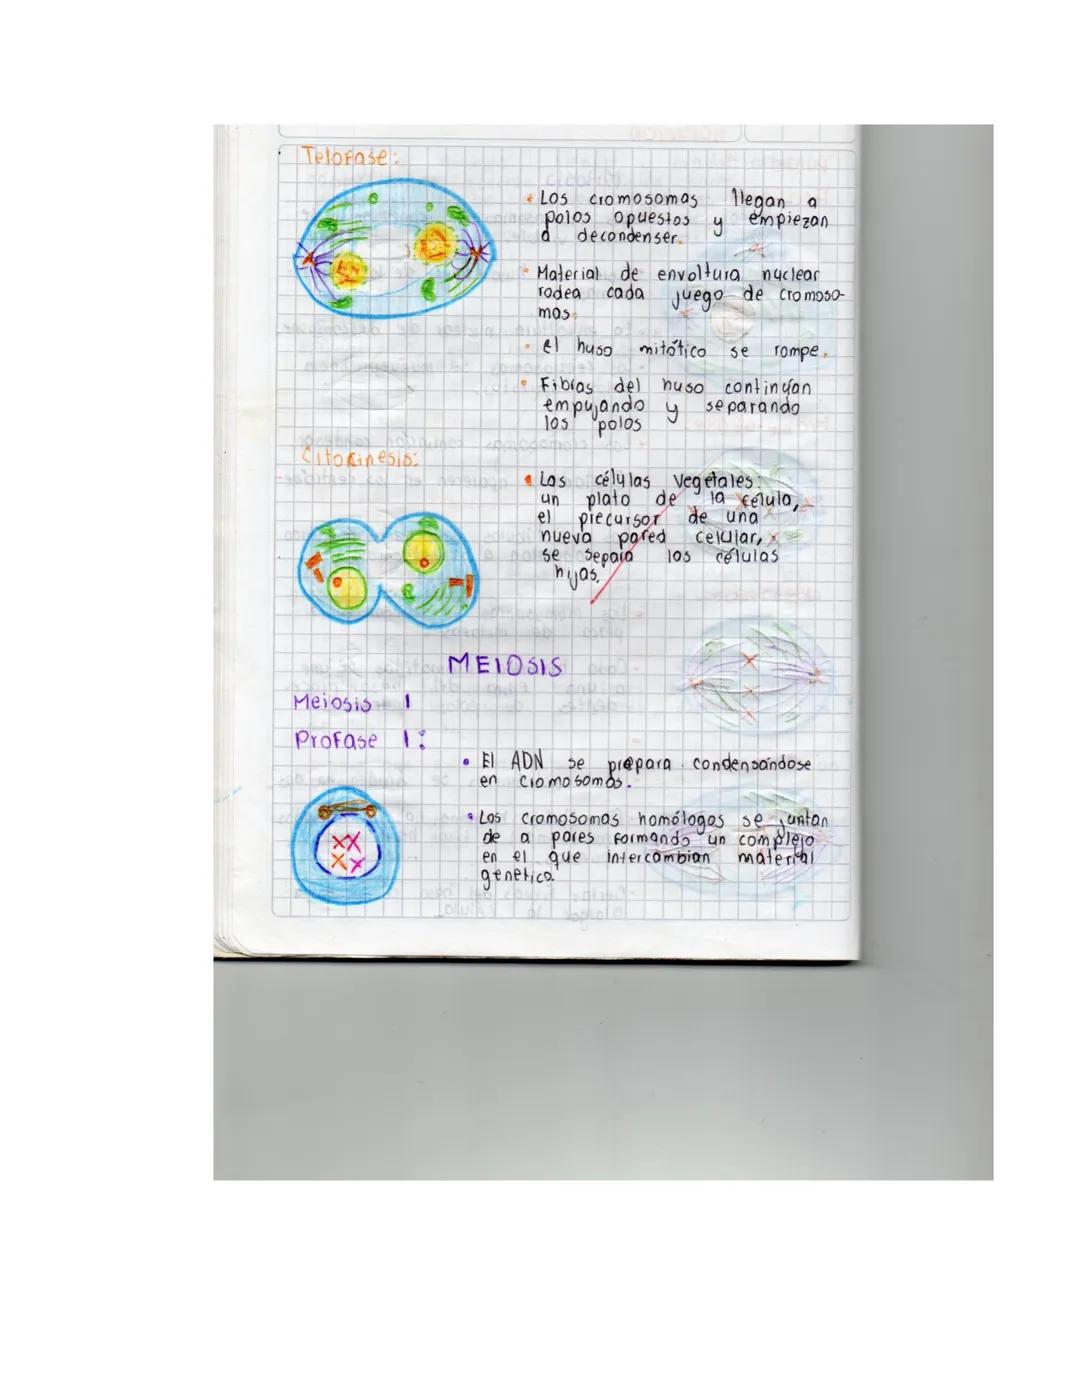 Telofase:
• Los cromosomas llegan a
polos opuestos y empiezan
a decondenser.
• Material de envoltura nuclear
rodea cada juego de cromoso-
mas.
• el huso mitótico se rompe.
• Fibras del huso continúan
empujando y separando
los polos
Citokinesis:
• Las células vegetales:
un plato de la célula,
el precursor de una
nueva pared celular,
se separa los células
hijas.
MEIOSIS
Meiosis 1
Profase 1:
• El ADN se prepara condensándose
en cromosomas.
• Los cromosomas homólogos se juntan
de a pares formando un complejo
en el que intercambian material
genético.